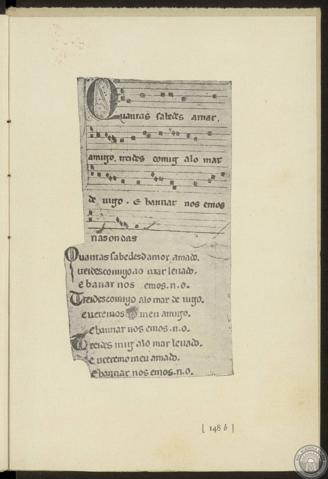 Quantas sabedes amar.
amigo. treides comig alo mar
de uigo. E bannar nos emos
nas ondas
Quantas sabedes damor amado.
treides comigo ao mar leuado.
e banar nos emos. n. o.
Treides comigo alo mar de uigo.
e ueremos meu amigo.
e bannar nos emos. n. o.
Treides mig alo mar leuado.
e ueremo meu amado.
e bannar nos emos. n. o.
[ 148 b ]